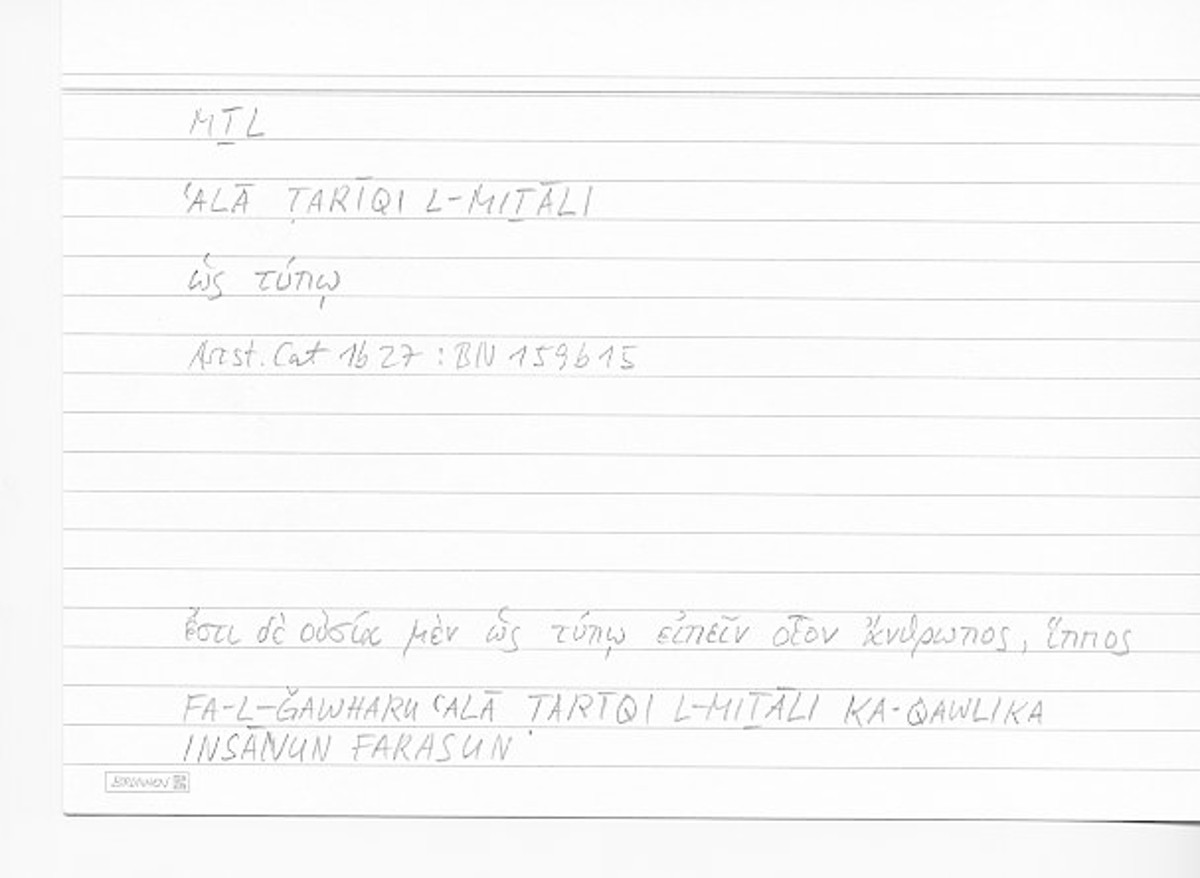 MṮL
ʿALĀ ṬARĪQI L-MIṮĀLI
ὡς τύπῳ
Arist. Cat 1b 27 : BN 159b15
ἔστι δὲ οὐσία μὲν ὡς τύπῳ εἰπεῖν οἷον ἄνθρωπος, ἵππος
FA-L-ǦAWHARU ʿALĀ ṬARĪQI L-MIṮĀLI KA-QAWLIKA
INSĀNUN FARASUN
BRUNNEN